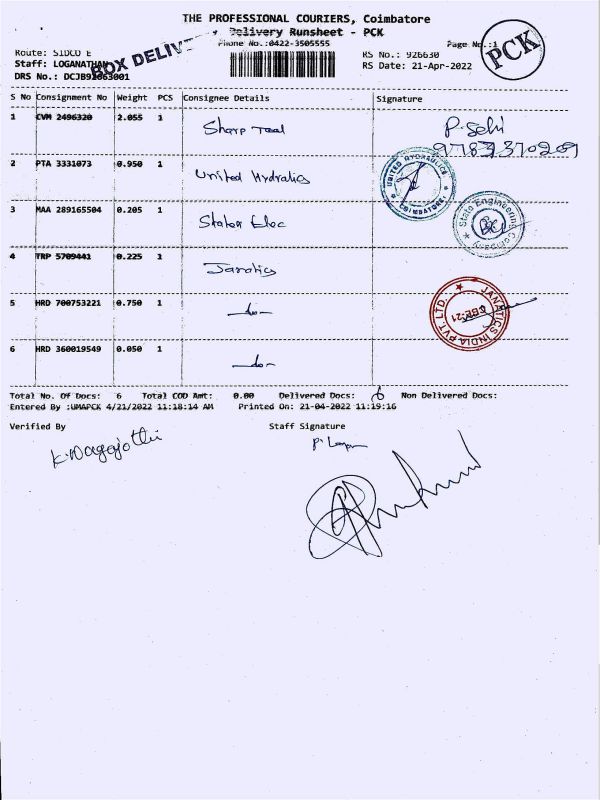 THE PROFESSIONAL COURIERS, Coimbatore
Delivery Runsheet - PCK
Phone No.:0422-3505555
Page No.:1
PCK
Route: SIDCO E
BOX DELIVE
RS No.: 926630
Staff: LOGANATHAN
RS Date: 21-Apr-2022
DRS No.: DCJB92063001
S No Consignment No Weight PCS Consignee Details Signature
1 CVM 2496320 2.055 1 Sharp Tool P. Selvi
2 PTA 3331073 0.950 1 United Hydralics UNITED HYDRAULICS COIMBATORE
3 MAA 289165504 0.205 1 States Elec State Engineering Company
4 TRP 5709441 0.225 1 Janatics
5 HRD 700753221 0.750 1 -do- JANATICS INDIA PVT LTD. CBE-21
6 HRD 360019549 0.050 1 -do-
Total No. Of Docs: 6 Total COD Amt: 0.00 Delivered Docs: 6 Non Delivered Docs:
Entered By :UMAPCK 4/21/2022 11:18:14 AM Printed On: 21-04-2022 11:19:16
Verified By Staff Signature
K. Nagajothi